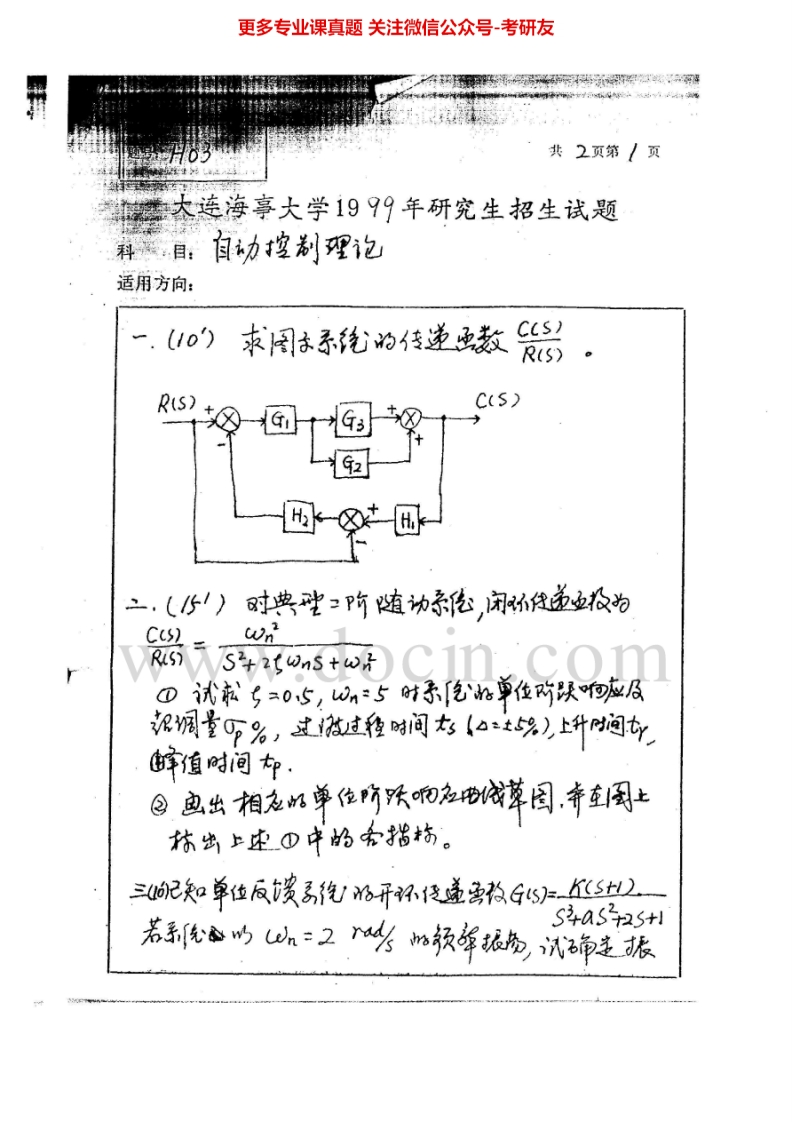 更多专业课真题 关注微信公众号-考研友
H03
共 2页第 1 页
大连海事大学1999年研究生招生试题
科 目: 自动控制理论
适用方向:
一.(10') 求图示系统的传递函数 C(S)/R(S) 。
R(S) + G1 G3 + C(S)
- G2 +
H2 + H1
-
二.(15') 对典型二阶随动系统,闭环传递函数为
C(S)/R(S) = ωn²/(S²+2ζωnS+ωn²)
www.docin.com
① 试求 ζ=0.5, ωn=5 时系统的单位阶跃响应及
超调量σp%, 过渡过程时间ts(Δ=±5%),上升时间tr,
峰值时间tp.
② 画出相应的单位阶跃响应曲线草图,并在图上
标出上述①中的各指标。
三(10)已知单位反馈系统的开环传递函数G(S)=K(S+1)/(S³+aS²+2S+1)
若系统以ωn=2 rad/s的频率振荡,试确定振